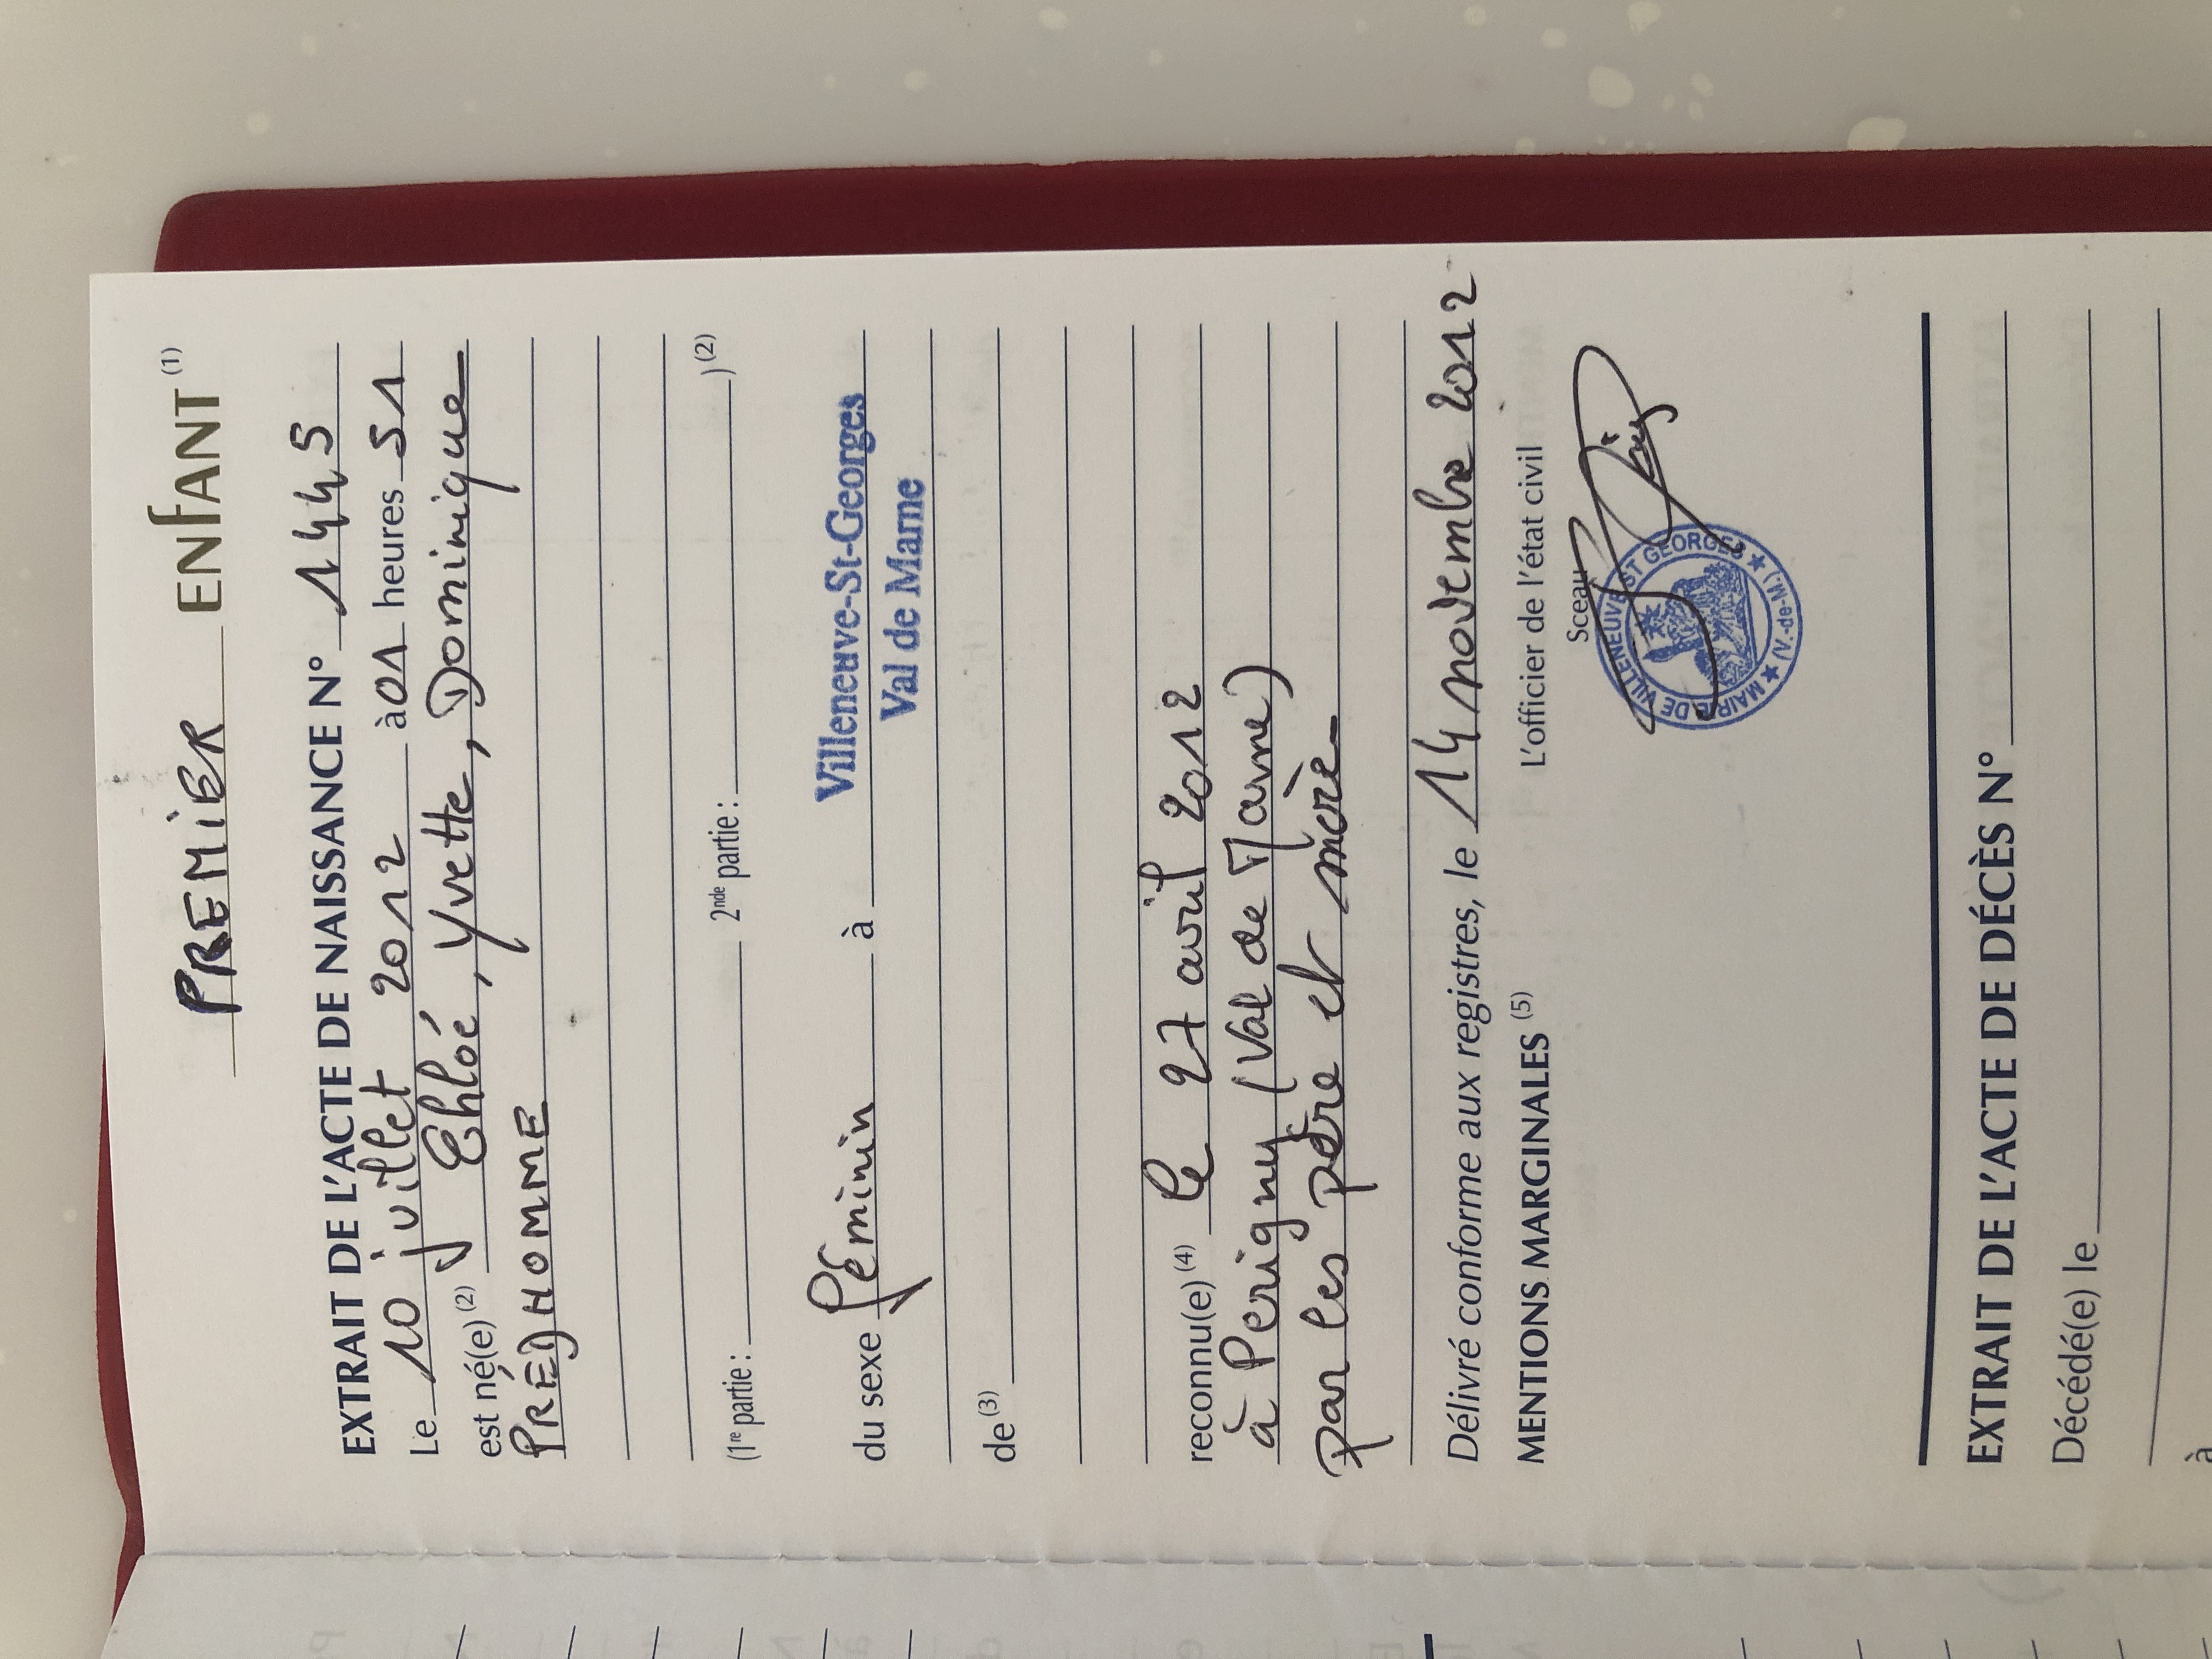 PREMIER ENFANT (1)
EXTRAIT DE L'ACTE DE NAISSANCE N° 1445
Le 10 juillet 2012 à 01 heures 51
est né(e) (2) Chloé, Yvette, Dominique
PRÉDHOMME
(1re partie : 2nde partie : ) (2)
du sexe féminin à Villeneuve-St-Georges
Val de Marne
de (3)
reconnu(e) (4) le 27 avril 2012
à Perigny (Val de Marne)
par les père et mère
Délivré conforme aux registres, le 14 novembre 2012
MENTIONS MARGINALES (5) L'officier de l'état civil
Sceau
MAIRIE DE VILLENEUVE ST GEORGES ★ (V.-de-M.) ★
EXTRAIT DE L'ACTE DE DÉCÈS N°
Décédé(e) le
à